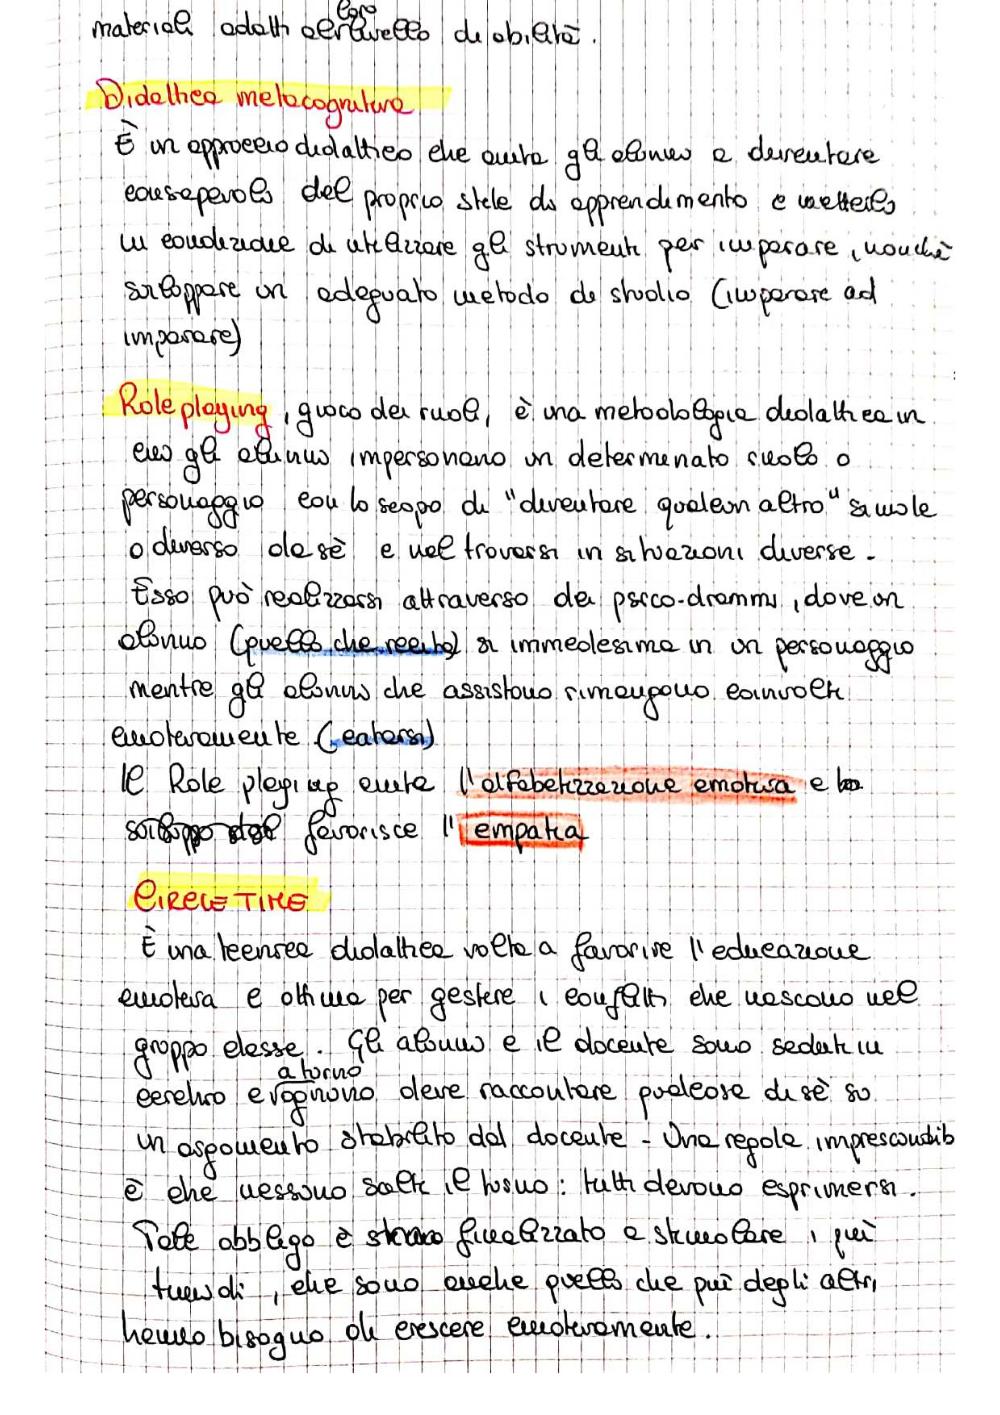 materiali adatti al loro livello di abilità.
Didattica metacognitiva
È un approccio didattico che aiuta gli alunni a diventare
consapevoli del proprio stile di apprendimento e metterli
in condizione di utilizzare gli strumenti per imparare, nonchè
sviluppare un adeguato metodo di studio (imparare ad
imparare)
Role playing, gioco dei ruoli, è una metodologia didattica in
cui gli alunni impersonano un determinato ruolo o
personaggio con lo scopo di "diventare qualcun altro" simile
o diverso da sè e nel trovarsi in situazioni diverse.
Esso può realizzarsi attraverso dei psico-drammi, dove un
alunno (quello che recita) si immedesima in un personaggio
mentre gli alunni che assistono rimangono coinvolti
emotivamente (catarsi)
Il Role playing aiuta l'alfabetizzazione emotiva e lo
sviluppo del favorisce l'empatia
CIRCLE TIME
È una tecnica didattica volta a favorire l'educazione
emotiva e ottima per gestire i conflitti che nascono nel
gruppo classe. Gli alunni e il docente sono seduti in
cerchio e a turno ognuno deve raccontare qualcosa di sè su
un argomento stabilito dal docente - Una regola imprescindib
è che nessuno salti il turno: tutti devono esprimersi.
Tale obbligo è finalizzato a stimolare i più
timidi, che sono anche quelli che più degli altri,
hanno bisogno di crescere emotivamente.